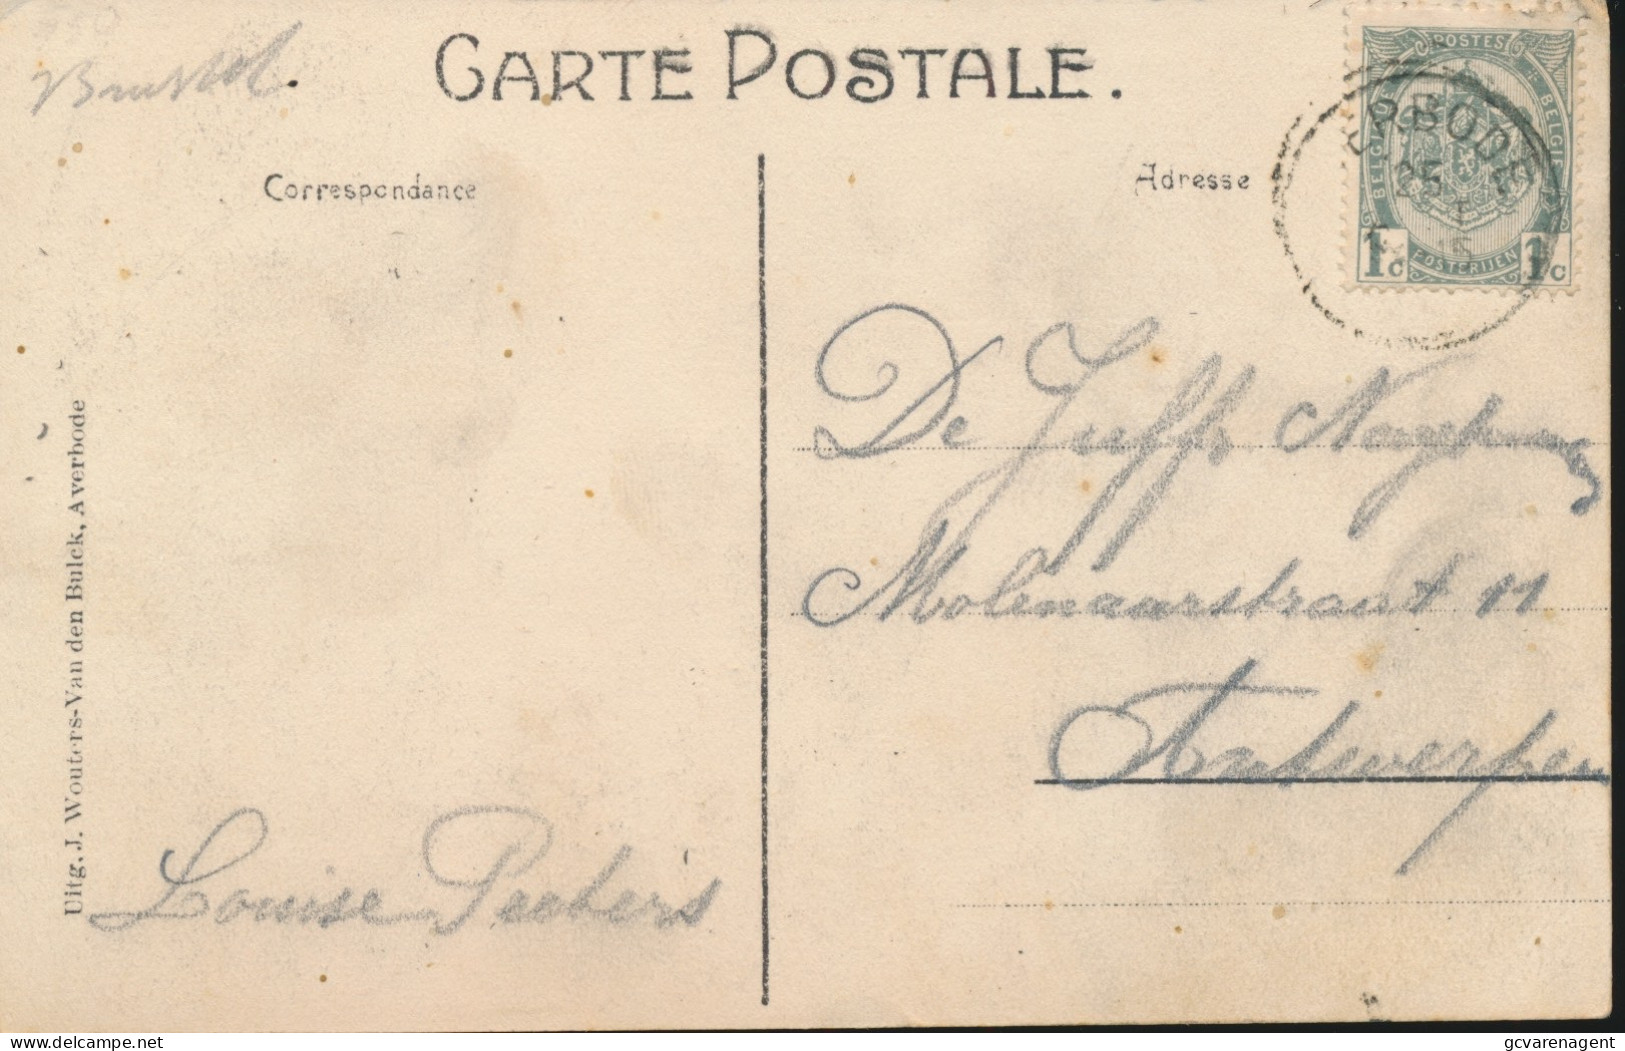 CARTE POSTALE.
Correspondance
Adresse
POSTES
BELGIQUE
BELGIË
1c
1c
POSTERIJEN
RBODE
25
15
De Juffr.
Molenaarstraat 11
Antwerpen
Louise Peeters
Uitg. J. Wouters-Van den Bulck, Averbode
delcampe.net
gcvarenagent